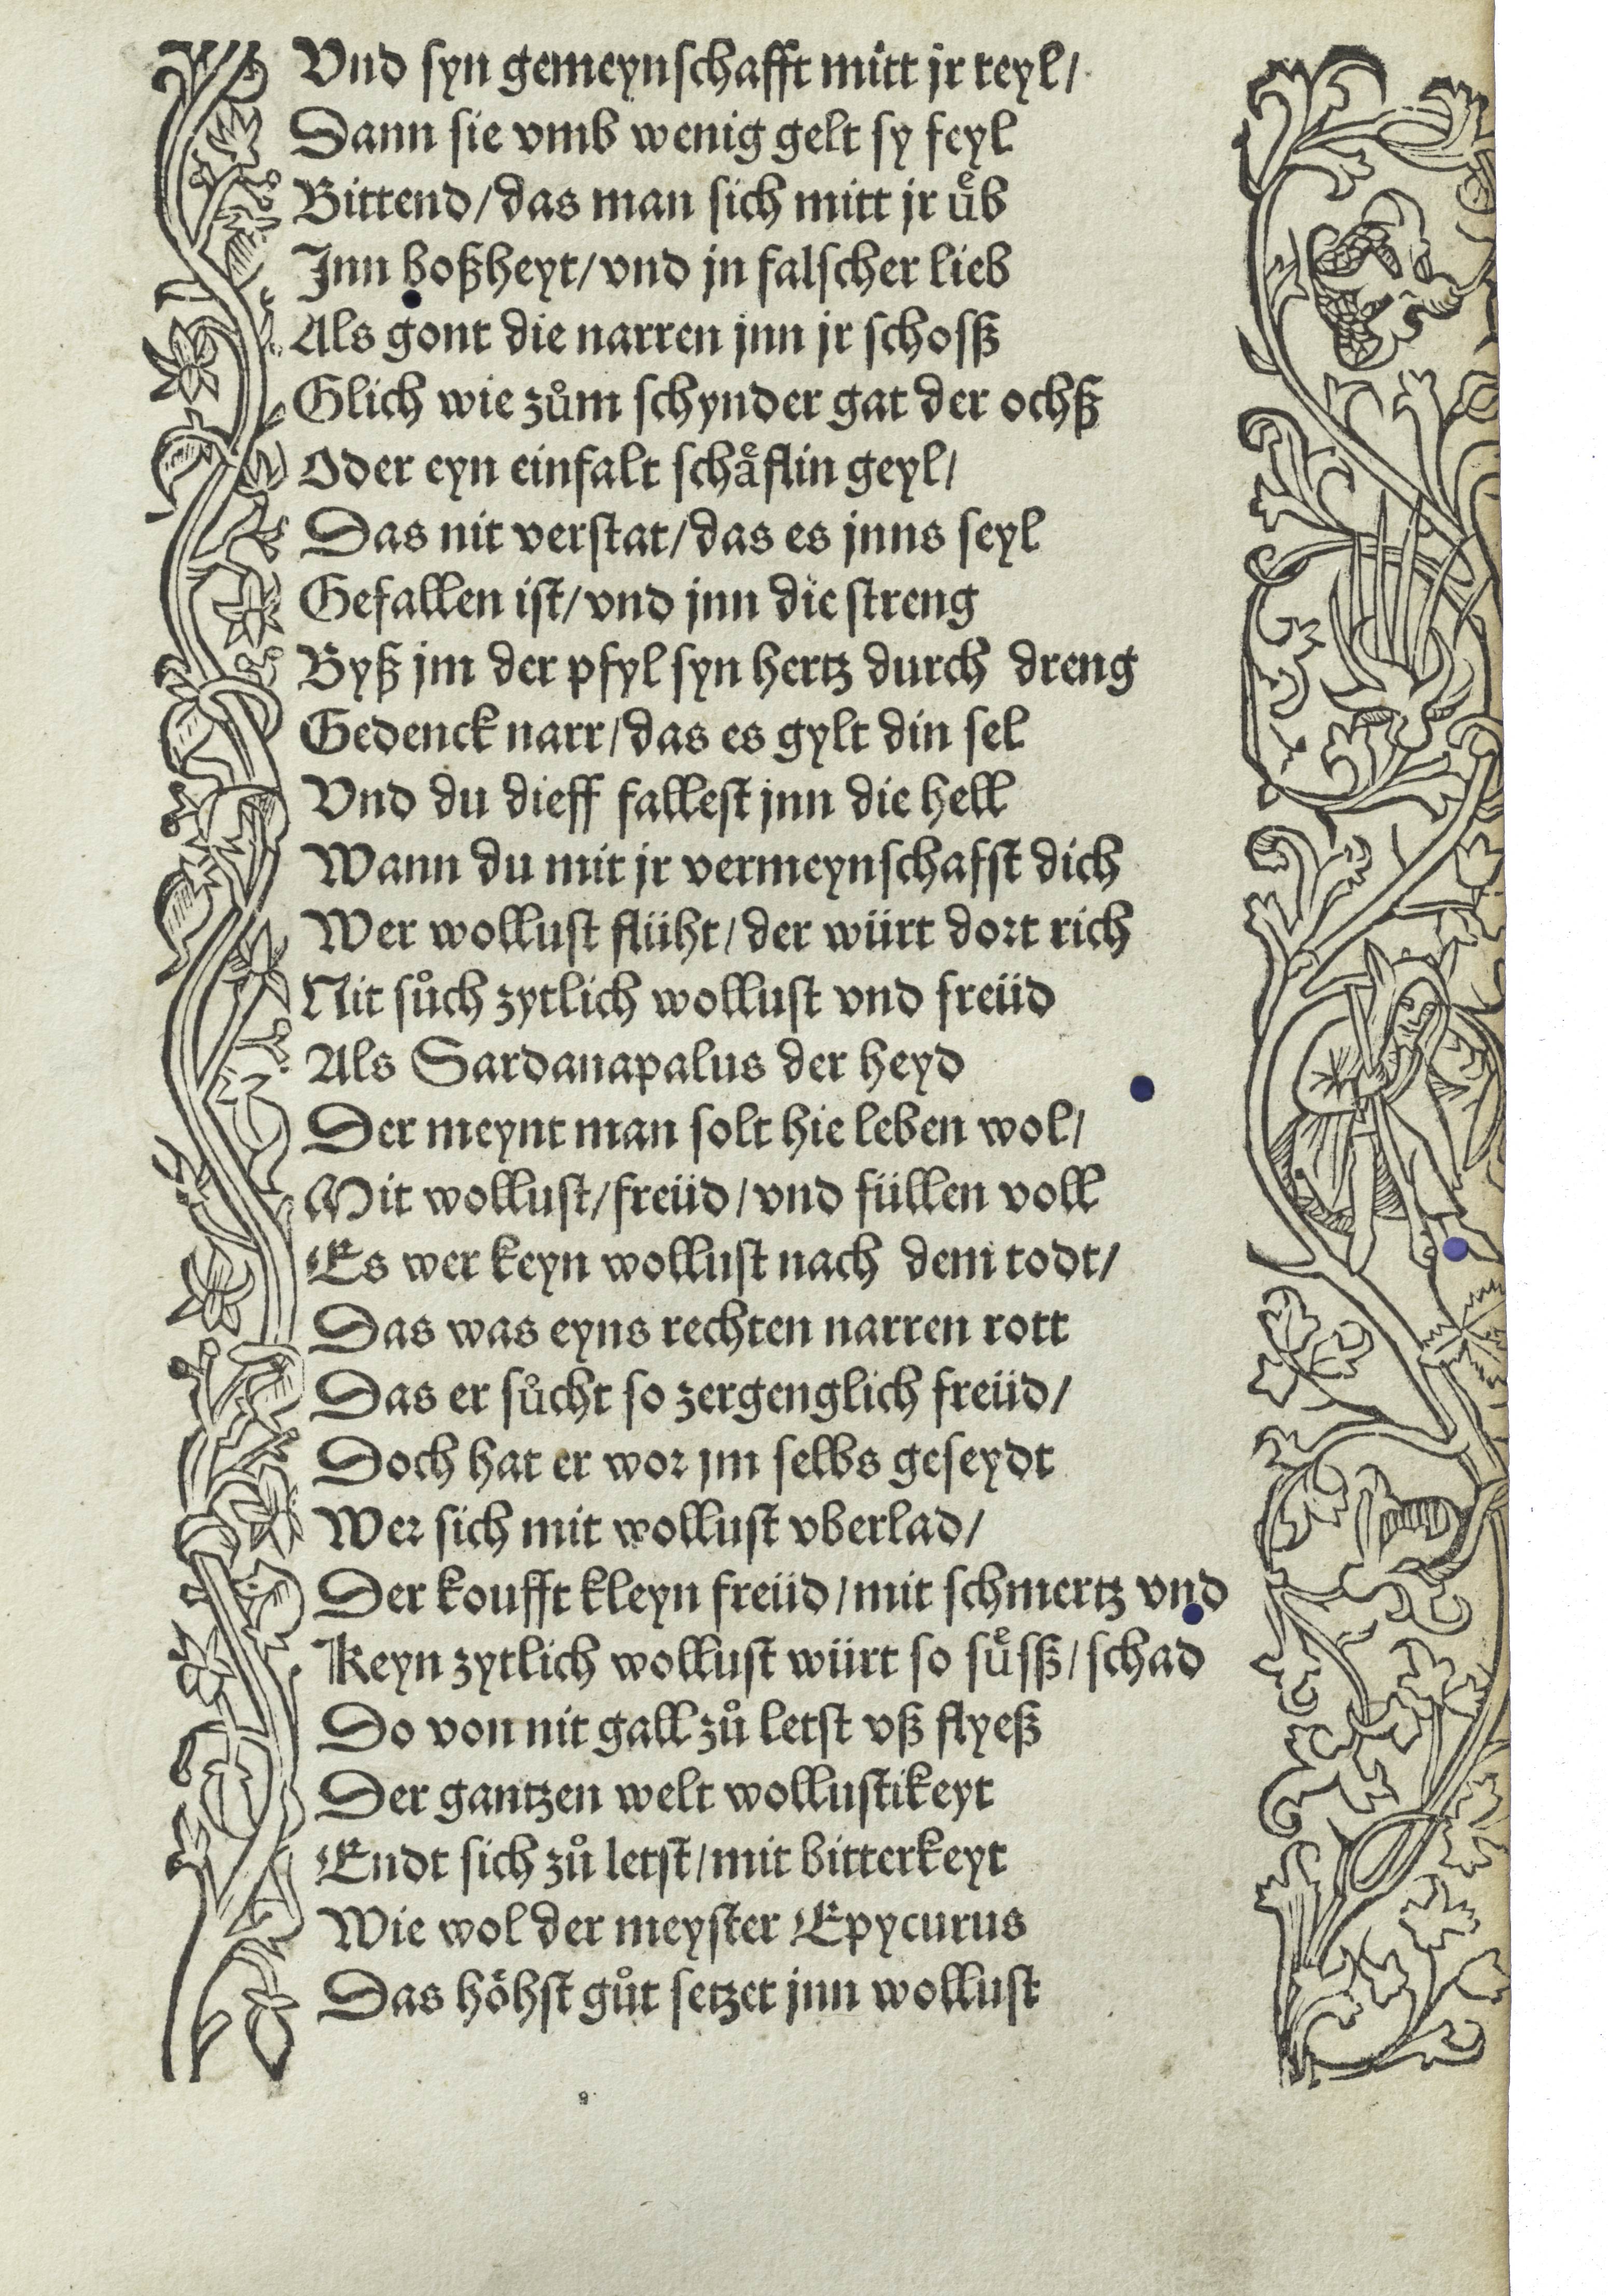 Vnd syn gemeynschafft mitt jr teyl/
Dann sie vmb wenig gelt sy feyl
Bittend/das man sich mitt jr uͤb
Jnn boßheyt/vnd jn falscher lieb
Als gont die narren jnn jr schosß
Glich wie zuͦm schynder gat der ochß
Oder eyn einfalt schaͤflin geyl/
Das nit verstat/das es jnns seyl
Gefallen ist/vnd jnn die streng
Byß jm der pfyl syn hertz durch dreng
Gedenck narr/das es gylt din sel
Vnd du dieff fallest jnn die hell
Wann du mit jr vermeynschafst dich
Wer wollust flüht/der würt dort rich
Nit suͦch zytlich wollust vnd freüd
Als Sardanapalus der heyd
Der meynt man solt hie leben wol/
Mit wollust/freüd/vnd füllen voll
Es wer keyn wollust nach dem todt/
Das was eyns rechten narren rott
Das er suͦcht so zergenglich freüd/
Doch hat er wor jm selbs geseydt
Wer sich mit wollust vberlad/
Der koufft kleyn freüd/mit schmertz vnd
Keyn zytlich wollust würt so suͤsß/schad
Do von nit gall zuͦ letst vß flyeß
Der gantzen welt wollustikeyt
Endt sich zuͦ letst/mit bitterkeyt
Wie wol der meyster Epycurus
Das höhst guͦt setzet jnn wollust